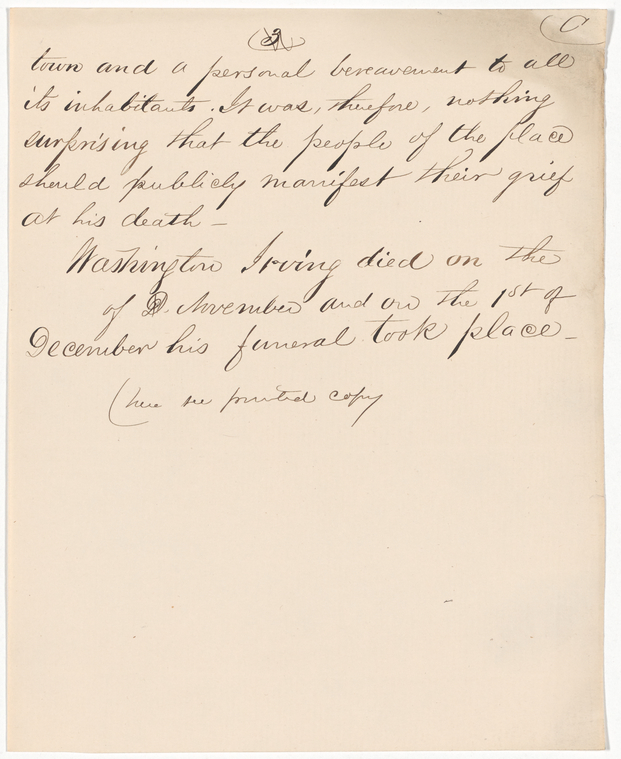 (3)
C
town and a personal bereavement to all
its inhabitants. It was, therefore, nothing
surprising that the people of the place
should publicly manifest their grief
at his death —
Washington Irving died on the
of D. November and on the 1st of
December his funeral took place —
(here see printed copy